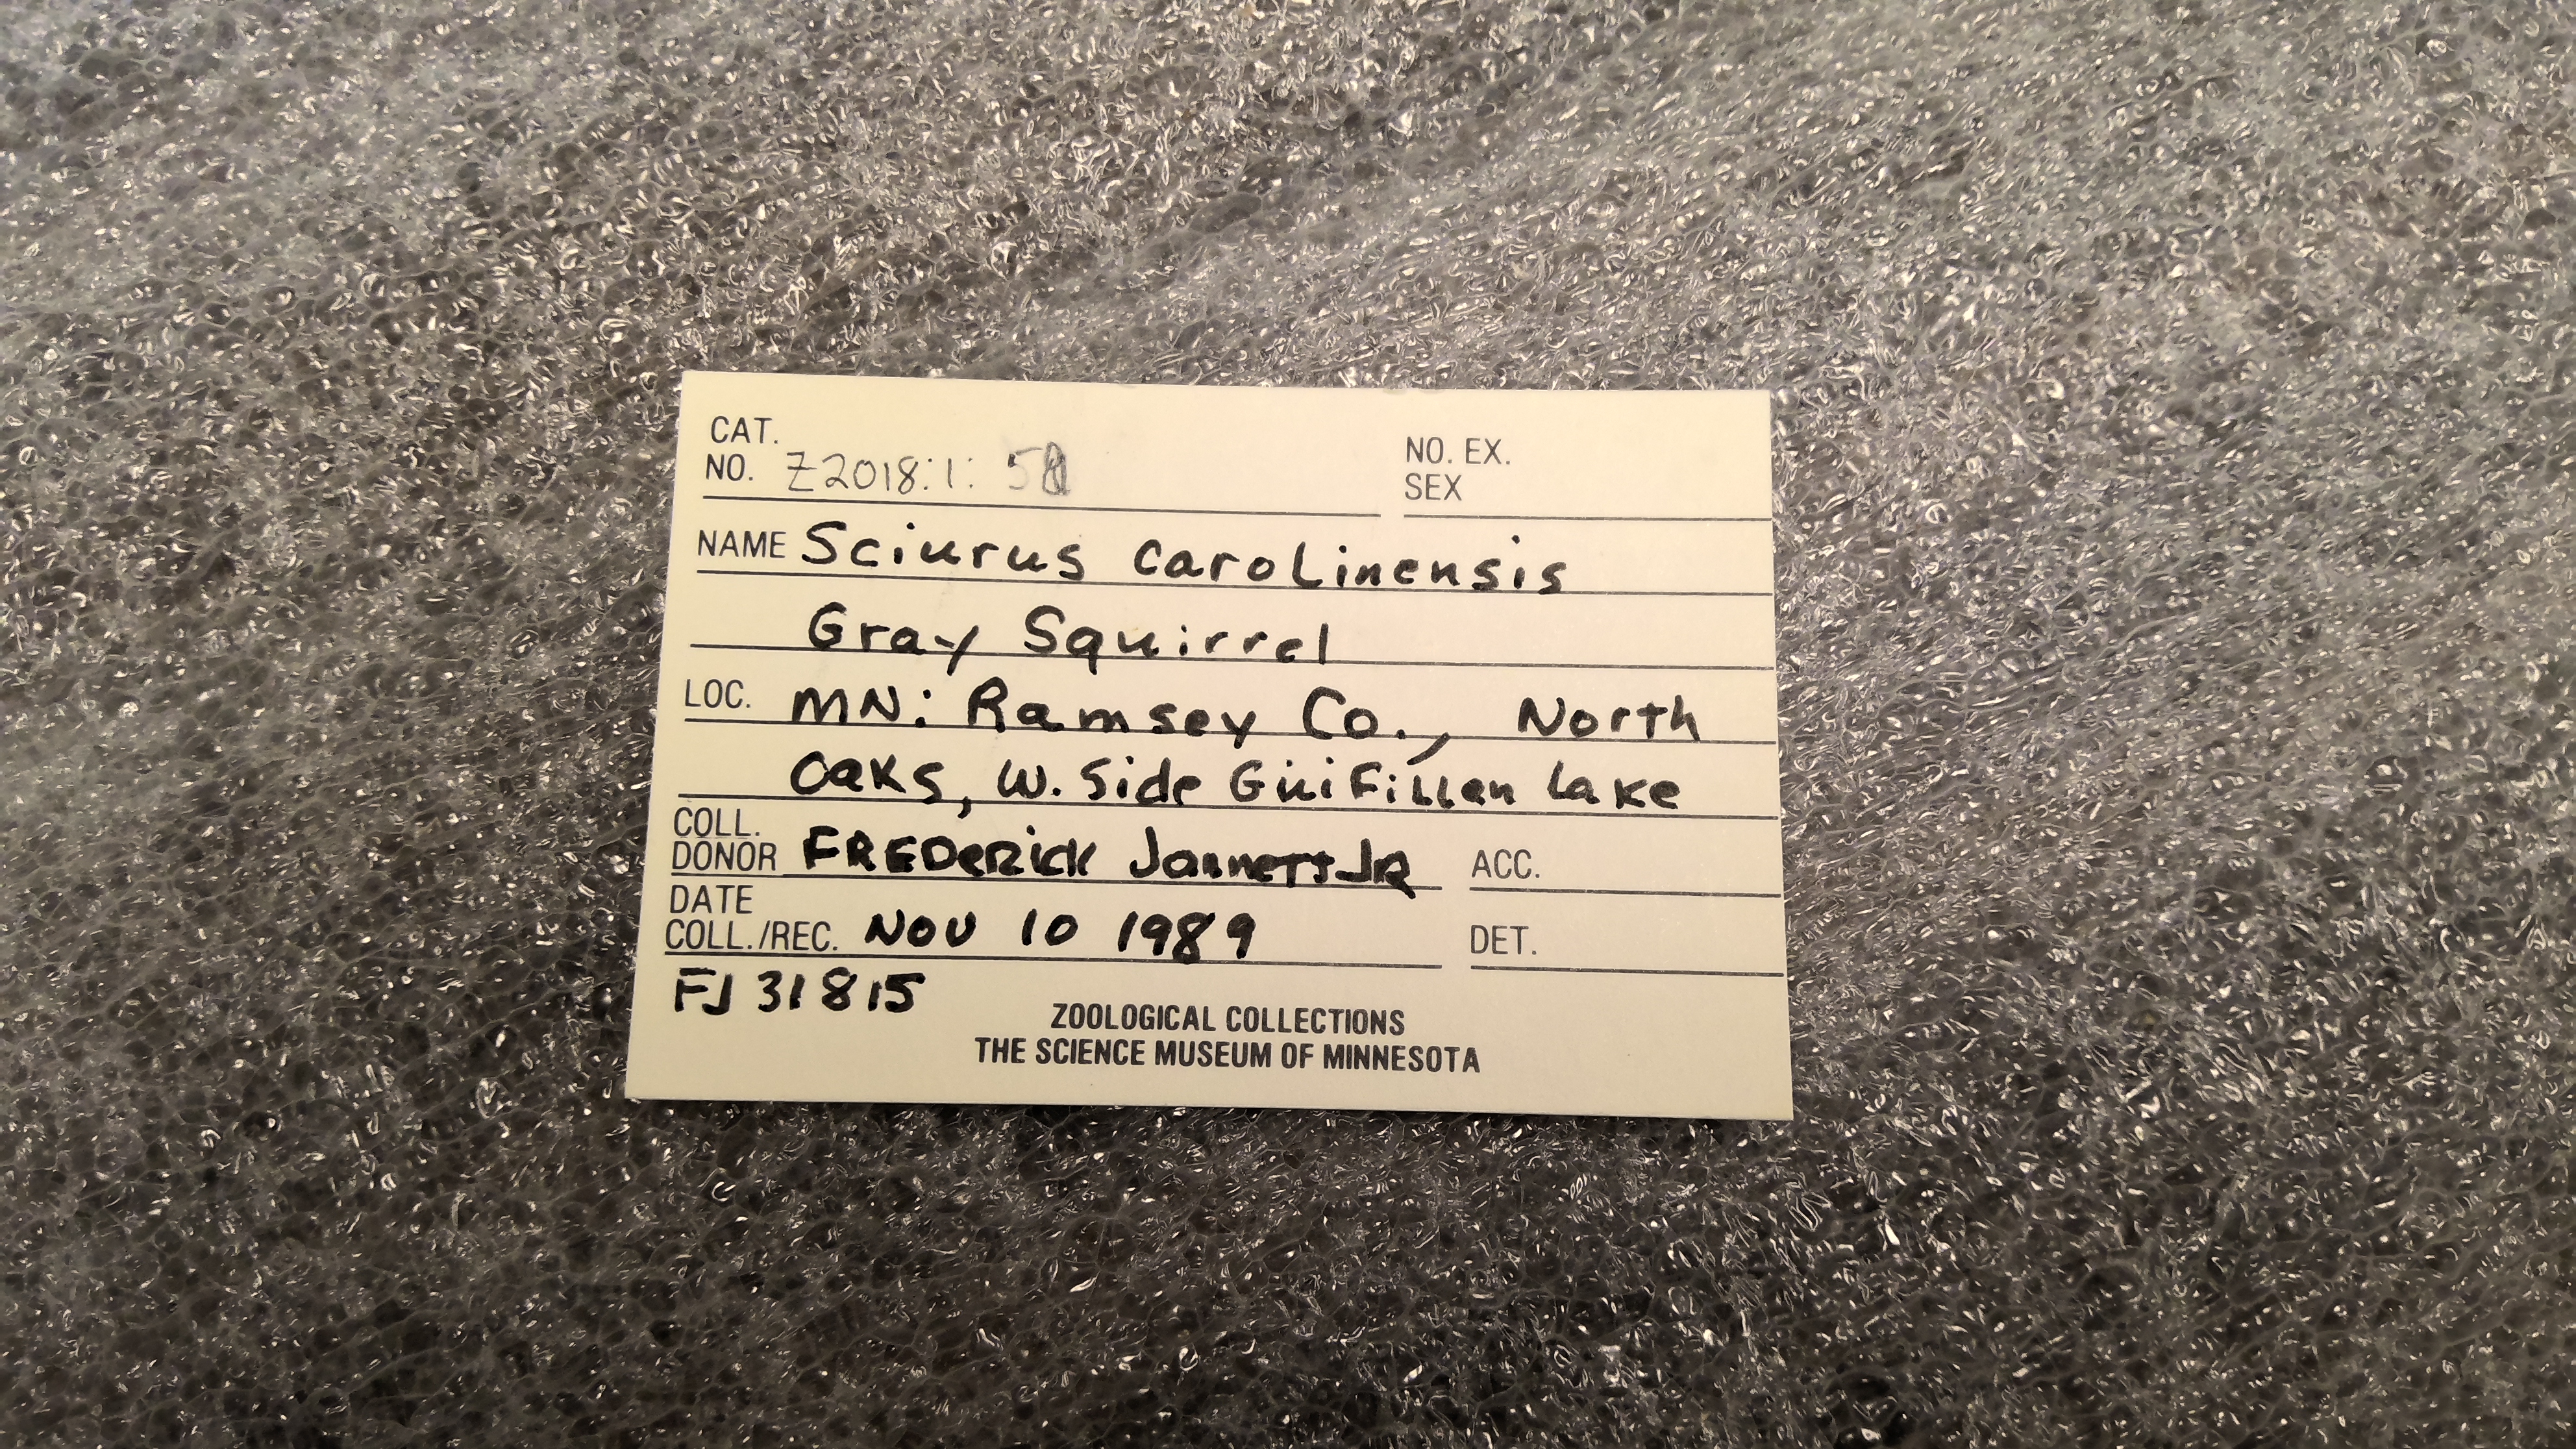 CAT.
NO. Z2018:1:
NO. EX.
SEX
NAME Sciurus carolinensis
Gray Squirrel
LOC. MN: Ramsey Co., North
Oaks, W. Side Gilfillan Lake
COLL.
DONOR FREDERICK Jannett JR
ACC.
DATE
COLL./REC. NOV 10 1989
DET.
FJ 31815
ZOOLOGICAL COLLECTIONS
THE SCIENCE MUSEUM OF MINNESOTA